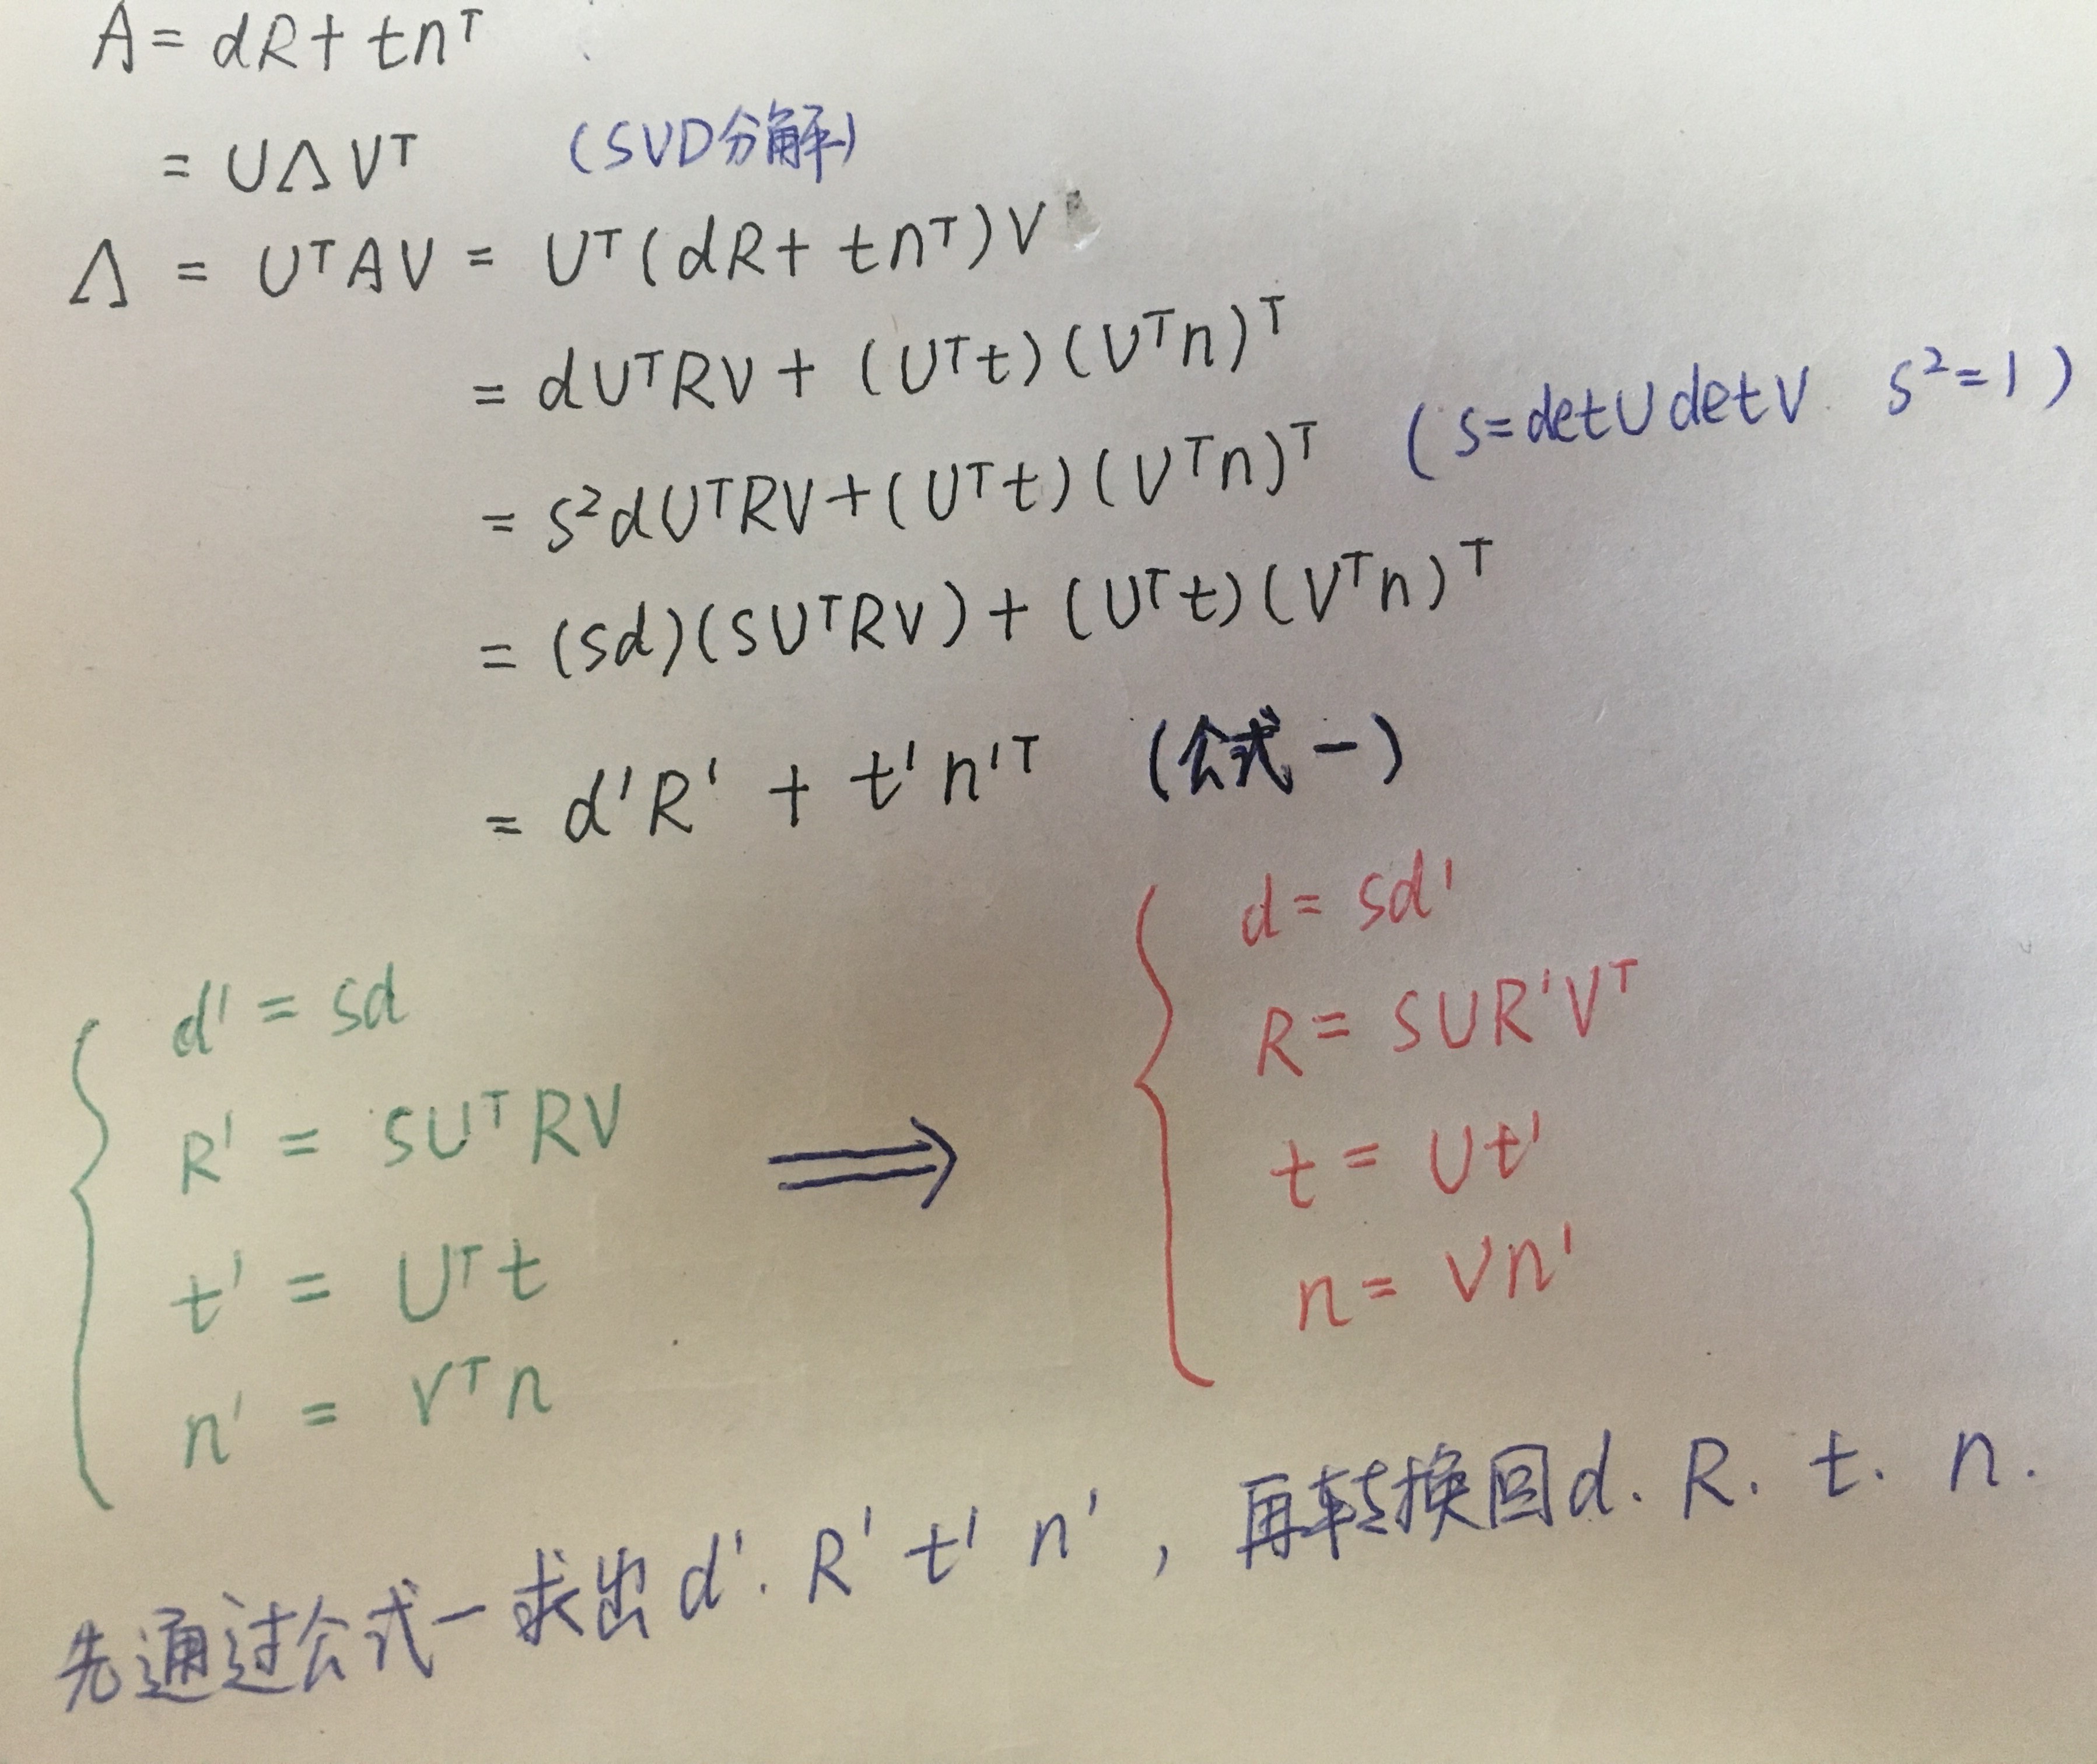 A = dR + tnᵀ
= UΛVᵀ (SVD分解)
Λ = UᵀAV = Uᵀ(dR + tnᵀ)V
= dUᵀRV + (Uᵀt)(Vᵀn)ᵀ
= s²dUᵀRV + (Uᵀt)(Vᵀn)ᵀ (s=detUdetV s²=1)
= (sd)(sUᵀRV) + (Uᵀt)(Vᵀn)ᵀ
= d'R' + t'n'ᵀ (公式一)
d' = sd
R' = sUᵀRV
t' = Uᵀt
n' = Vᵀn
⟹
d = sd'
R = sUR'Vᵀ
t = Ut'
n = Vn'
先通过公式一求出d'. R' t' n', 再转换回d. R. t. n.